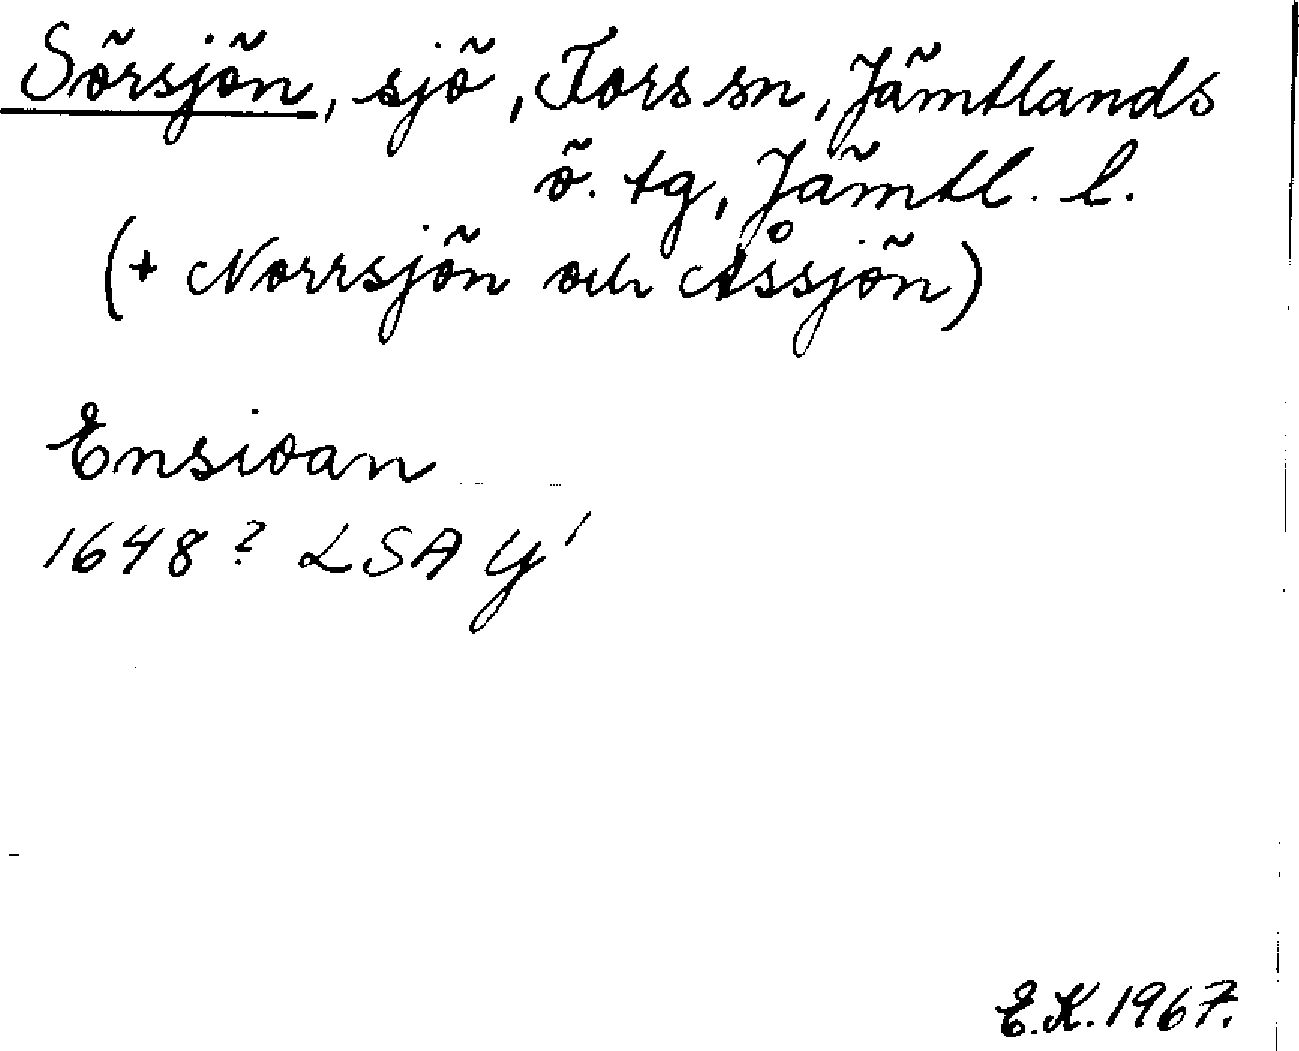 Sörsjön, sjö, Fors sn, Jämtlands
ö. tg, Jämtl. l.
(+ Norrsjön och Åssjön)
Ensioan
1648? LSA Y'
E.K. 1967.